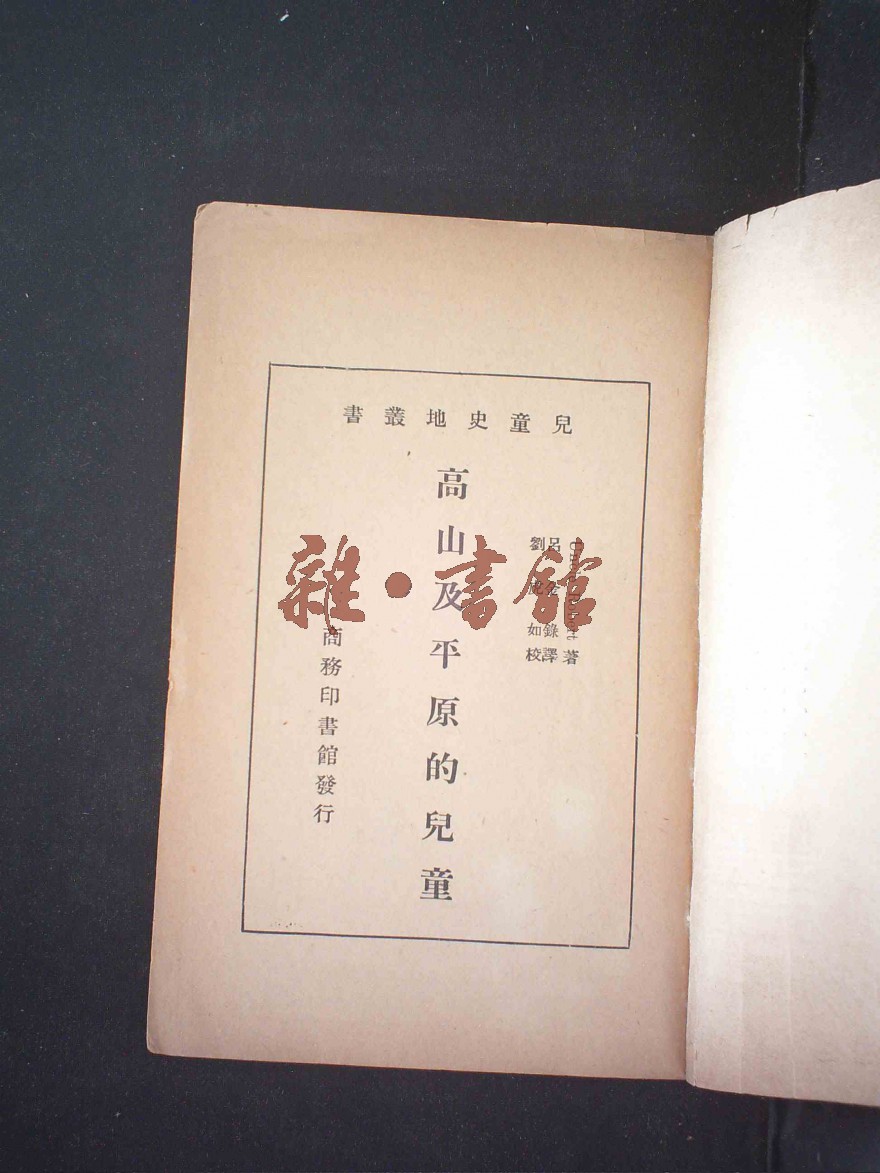 兒童史地叢書
著
呂金錄譯
劉虎如校
高山及平原的兒童
商務印書館發行
雜·書館